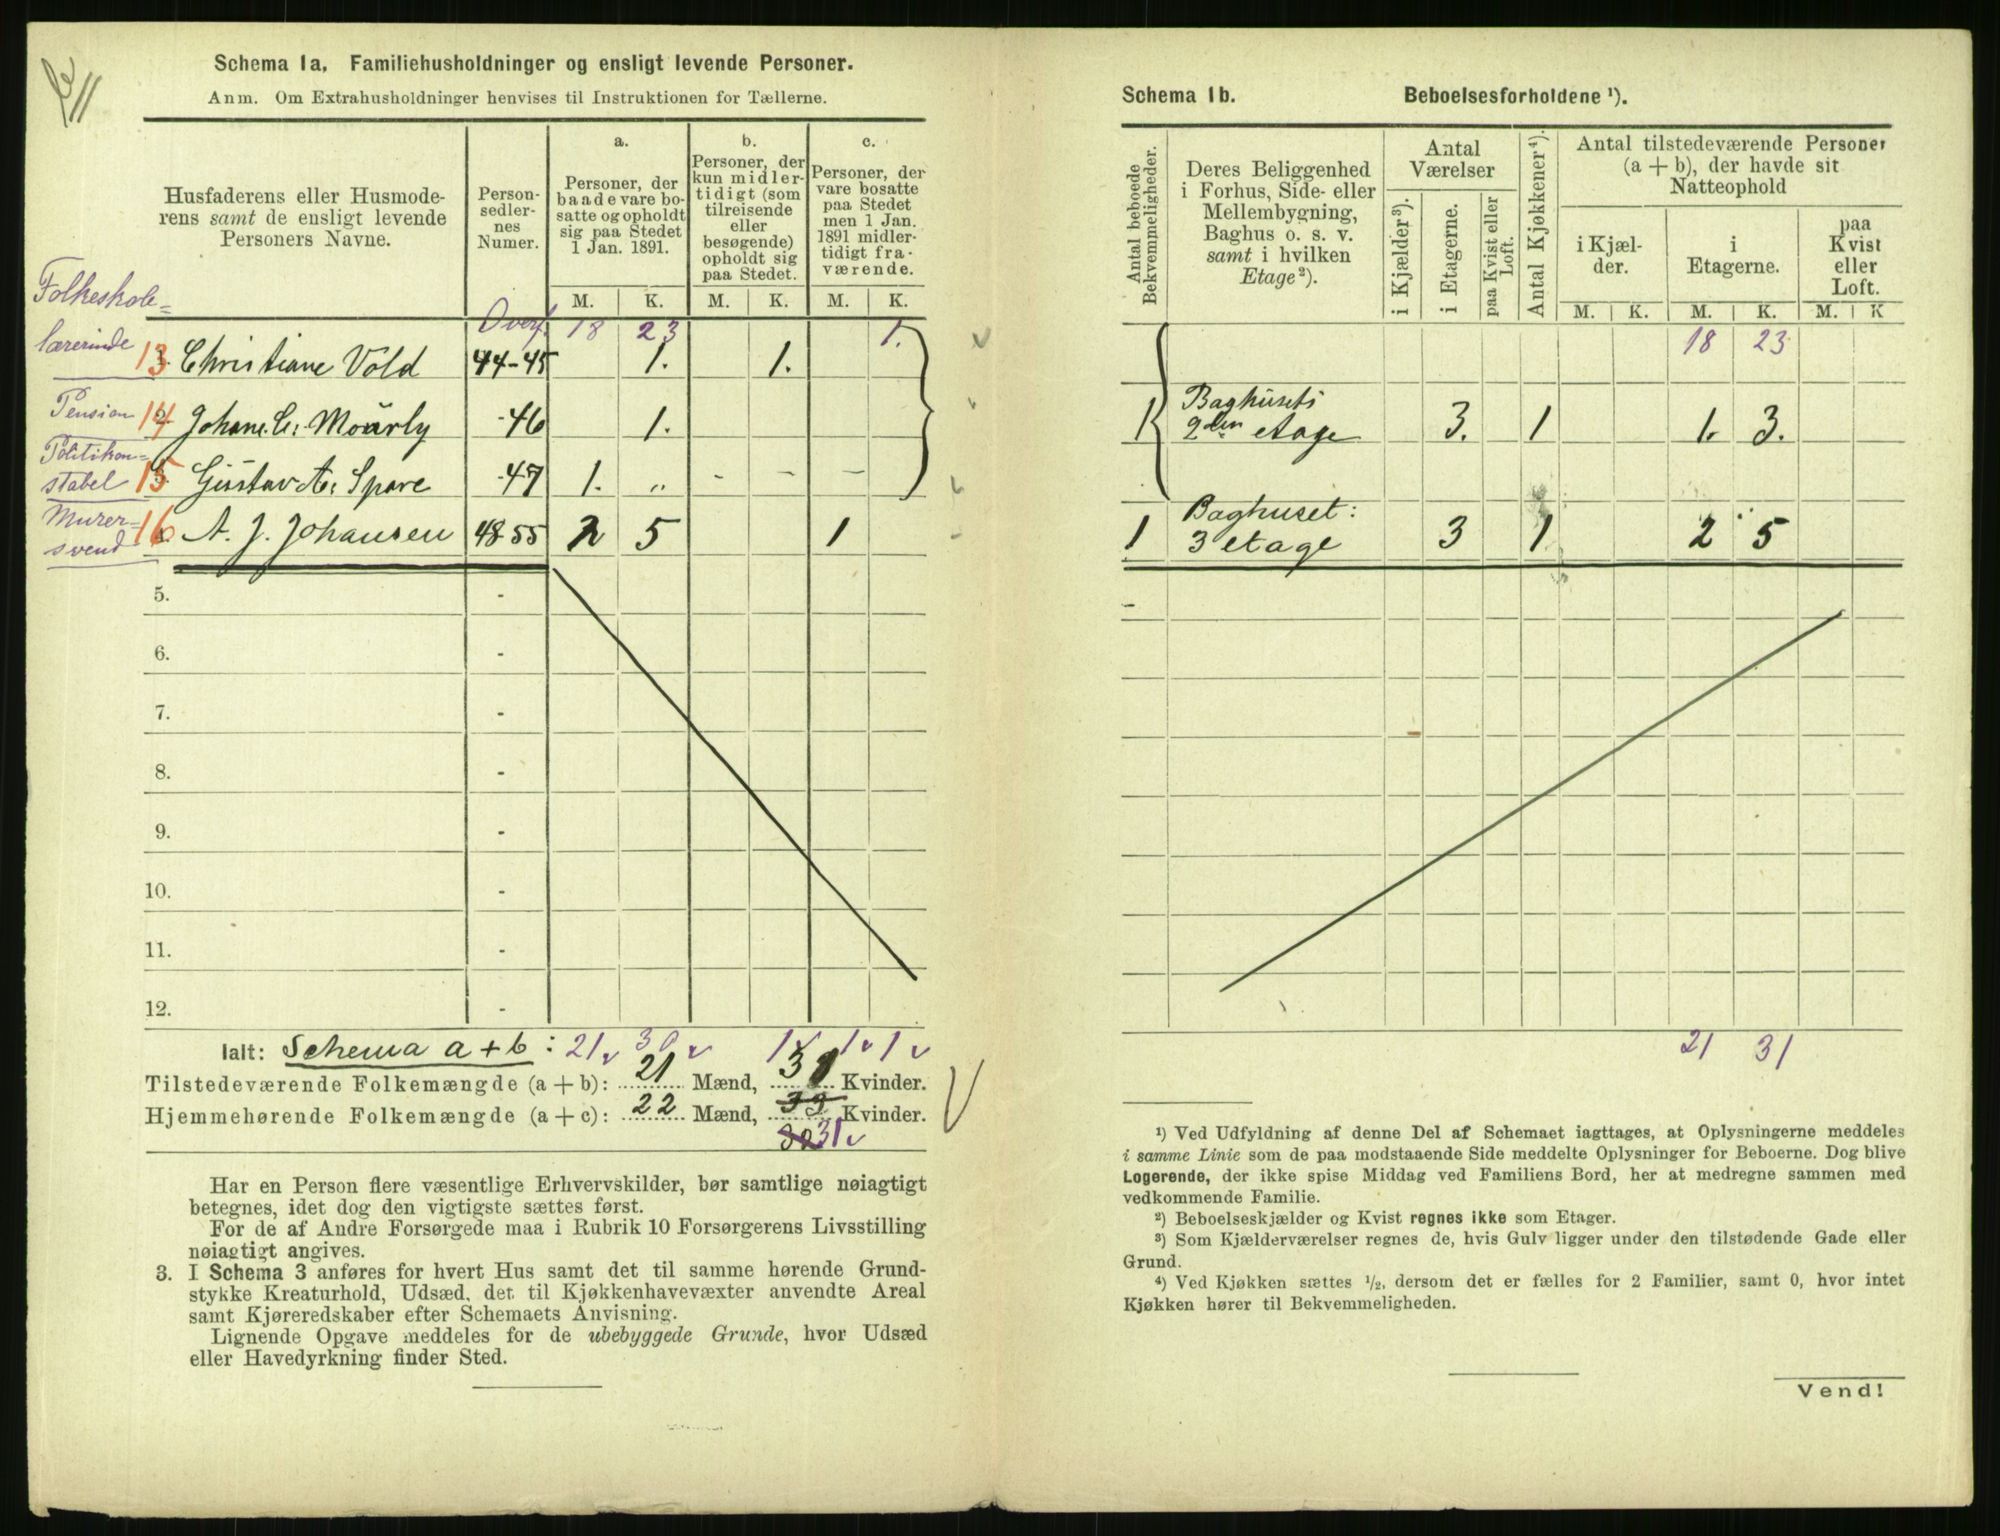 Schema 1a, Familiehusholdninger og ensligt levende Personer.
Anm. Om Extrahusholdninger henvises til Instruktionen for Tællerne.
Husfaderens eller Husmode-
rens samt de ensligt levende
Personers Navne.
Person-
sedler-
nes
Numer.
a.
Personer, der
baade vare bo-
satte og opholdt
sig paa Stedet
1 Jan. 1891.
b.
Personer, der
kun midler-
tidigt (som
tilreisende
eller
besøgende)
opholdt sig
paa Stedet.
c.
Personer, der
vare bosatte
paa Stedet
men 1 Jan.
1891 midler-
tidigt fra-
værende.
M. K. M. K. M. K.
Overf. 18 23 1.
Folkeskole=
lærerinde 13 Christiane Vold 44-45 1. 1.
Pension 14 Johane C: Mourly -46 1.
Politikon=
stabel 15 Gustav A: Spare -47 1. „ - - -
Murer=
svend 16 A. J. Johansen 48-55 2 5 1
5. -
6. -
7. -
8. -
9. -
10. -
11. -
12. -
Ialt: Schema a+b: 21 30 1 1 1
Tilstedeværende Folkemængde (a + b): 21 Mænd, 31 Kvinder.
Hjemmehørende Folkemængde (a + c): 22 Mænd, 33 Kvinder.
32 31
Har en Person flere væsentlige Erhvervskilder, bør samtlige nøiagtigt
betegnes, idet dog den vigtigste sættes først.
For de af Andre Forsørgede maa i Rubrik 10 Forsørgerens Livsstilling
nøiagtigt angives.
3. I Schema 3 anføres for hvert Hus samt det til samme hørende Grund-
stykke Kreaturhold, Udsæd, det til Kjøkkenhavevæxter anvendte Areal
samt Kjøreredskaber efter Schemaets Anvisning.
Lignende Opgave meddeles for de ubebyggede Grunde, hvor Udsæd
eller Havedyrkning finder Sted.
Schema 1b. Beboelsesforholdene ¹).
Antal beboede
Bekvemmeligheder.
Deres Beliggenhed
i Forhus, Side- eller
Mellembygning,
Baghus o. s. v.
samt i hvilken
Etage²).
Antal
Værelser
i Kjælder³).
i Etagerne.
paa Kvist eller
Loft.
Antal Kjøkkener⁴).
Antal tilstedeværende Personer
(a + b), der havde sit
Natteophold
i Kjæl-
der.
i
Etagerne.
paa
Kvist
eller
Loft.
M. K. M. K. M. K
18 23
1 Baghusets
2den etage 3. 1 1. 3.
1 Baghuset:
3 etage 3 1 2 5
21 31
¹) Ved Udfyldning af denne Del af Schemaet iagttages, at Oplysningerne meddeles
i samme Linie som de paa modstaaende Side meddelte Oplysninger for Beboerne. Dog blive
Logerende, der ikke spise Middag ved Familiens Bord, her at medregne sammen med
vedkommende Familie.
²) Beboelseskjælder og Kvist regnes ikke som Etager.
³) Som Kjælderværelser regnes de, hvis Gulv ligger under den tilstødende Gade eller
Grund.
⁴) Ved Kjøkken sættes ½, dersom det er fælles for 2 Familier, samt 0, hvor intet
Kjøkken hører til Bekvemmeligheden.
Vend!